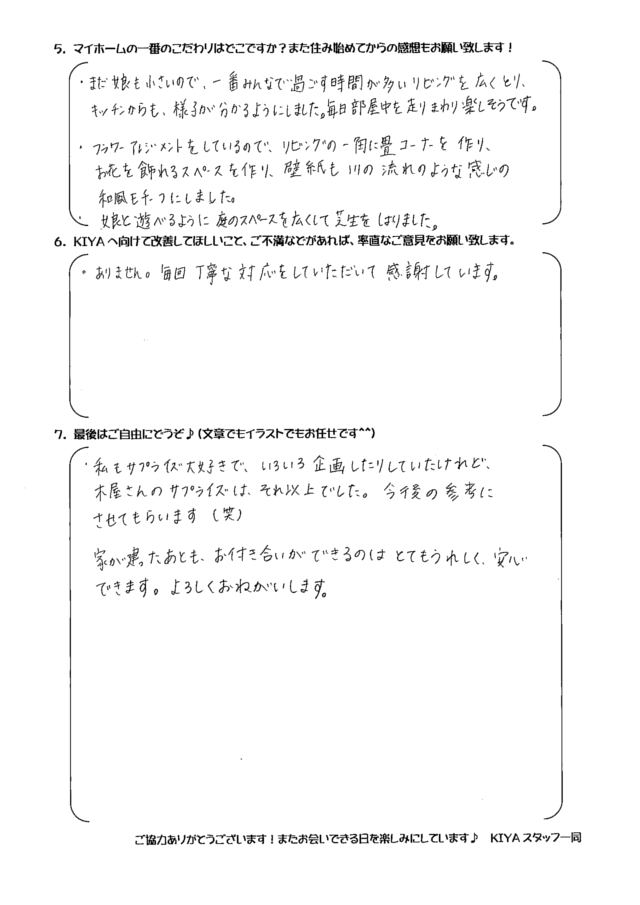 5. マイホームの一番のこだわりはどこですか？また住み始めてからの感想もお願い致します！
・まだ娘も小さいので、一番みんなで過ごす時間が多いリビングを広くとり、
キッチンからも、様子が分かるようにしました。毎日部屋中を走りまわり楽しそうです。
・フラワーアレンジメントをしているので、リビングの一角に畳コーナーを作り、
お花を飾れるスペースを作り、壁紙も川の流れのような感じの
和風モチーフにしました。
・娘と遊べるように庭のスペースを広くして芝生をはりました。
6. KIYAへ向けて改善してほしいこと、ご不満などがあれば、率直なご意見をお願い致します。
・ありません。毎回丁寧な対応をしていただいて感謝しています。
7. 最後はご自由にどうぞ♪(文章でもイラストでもお任せです^^)
・私もサプライズ大好きで、いろいろ企画したりしていたけれど、
木屋さんのサプライズは、それ以上でした。今後の参考に
させてもらいます(笑)
家が建ったあとも、お付き合いができるのはとてもうれしく、安心
できます。よろしくおねがいします。
ご協力ありがとうございます！またお会いできる日を楽しみにしています♪ KIYAスタッフ一同